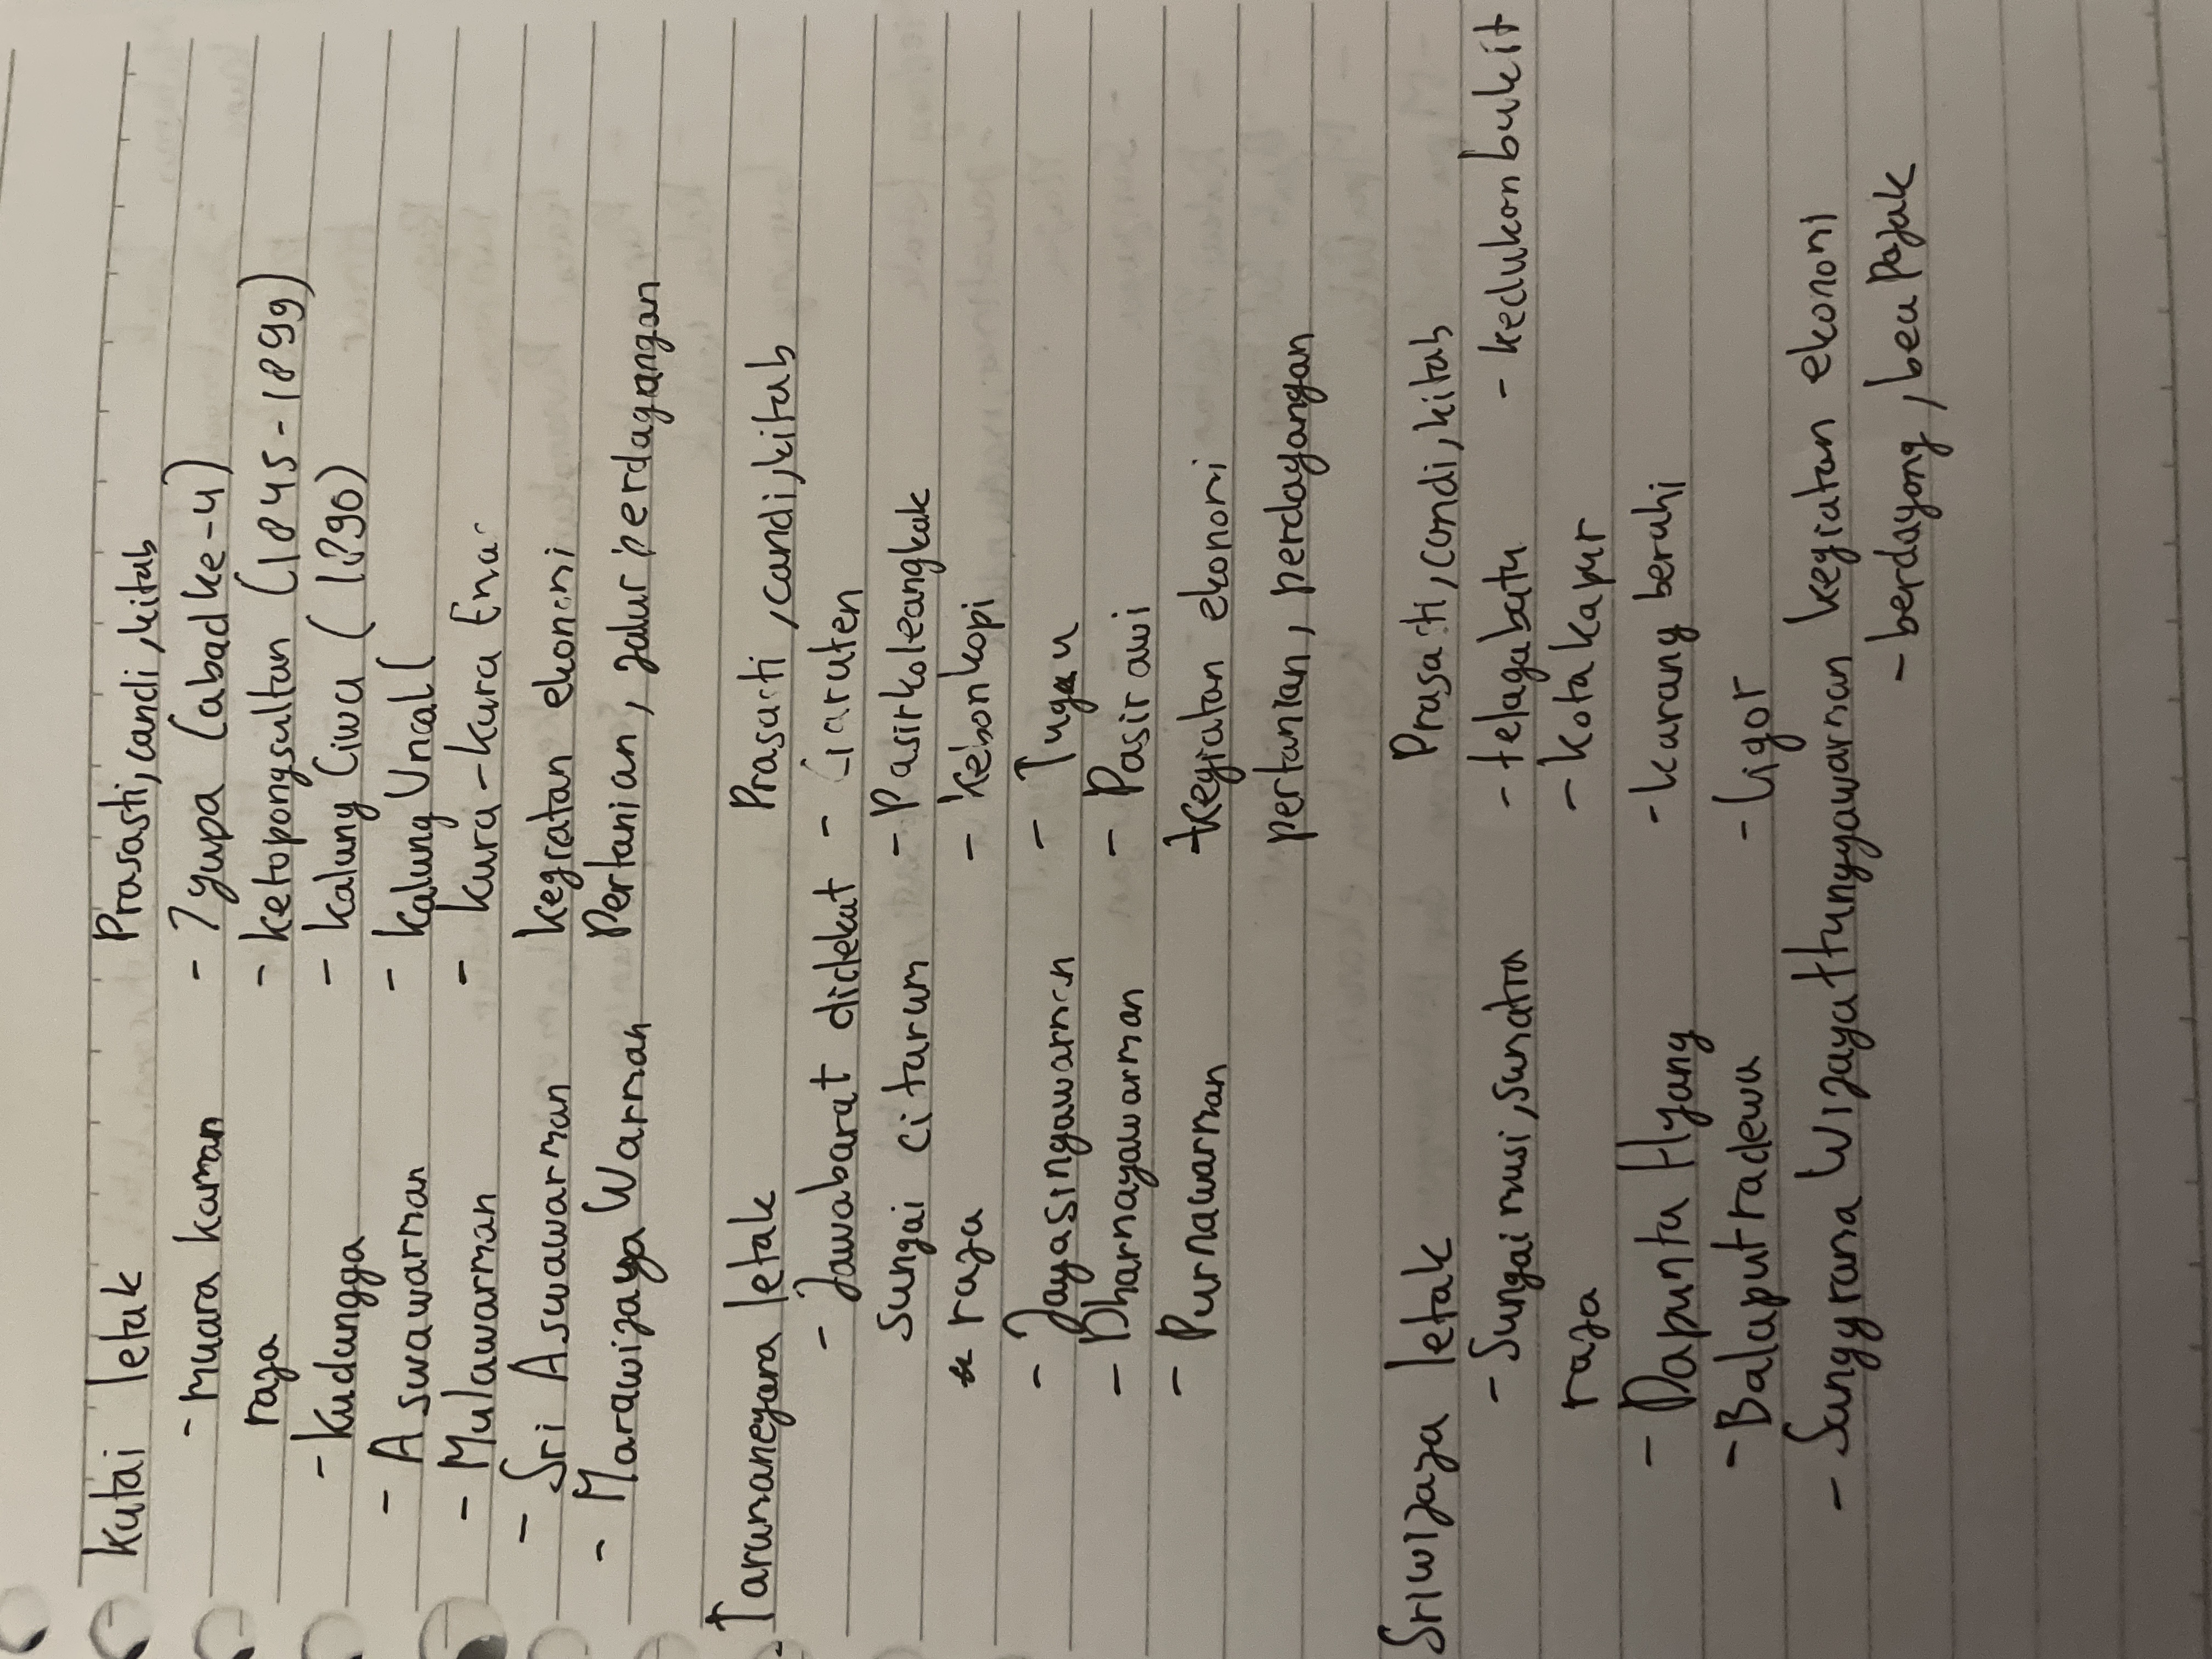 Kutai letak
- muara kaman
raja
- Kudungga
- Aswawarman
- Mulawarman
- Sri Aswawarman
- Marawijaya Warman
Prasasti, candi, kitab
- 7 yupa (abad ke-4)
- ketopong sultan (1845-1899)
- kalung Ciwa (1890)
- kalung Uncal (
- kura-kura
kegiatan ekonomi
Pertanian, jalur perdagangan
Tarumanegara letak
- Jawabarat didekat
sungai citarum
raja
- Jayasingawarman
- Dharnayawarman
- Purnawarman
Prasasti, candi, kitab
- Ciaruten
- Pasirkoleangkak
- kebonkopi
- Tugu
- Pasir awi
kegiatan ekonomi
pertanian, perdagangan
Sriwijaja letak
- Sungai musi, sumatra
raja
- Dapunta Hyang
- Balaputradewa
- Sanggrama Wijayattunggawarman
Prasasti, candi, kitab
- telagabatu - kedukan bukit
- kota kapur
- karang berahi
- Ligor
kegiatan ekonomi
- berdagang, bea pajak